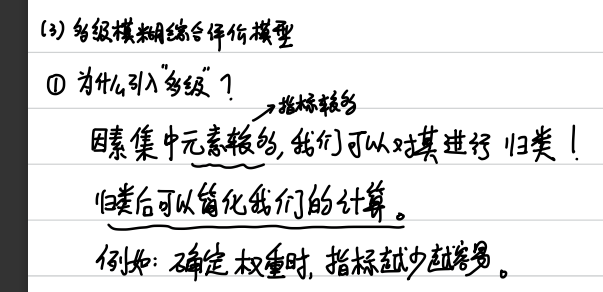 (3) 多级模糊综合评价模型
① 为什么引入“多级”?
→指标较多
因素集中元素较多,我们可以对其进行归类!
归类后可以简化我们的计算。
例如:确定权重时,指标越少越容易。